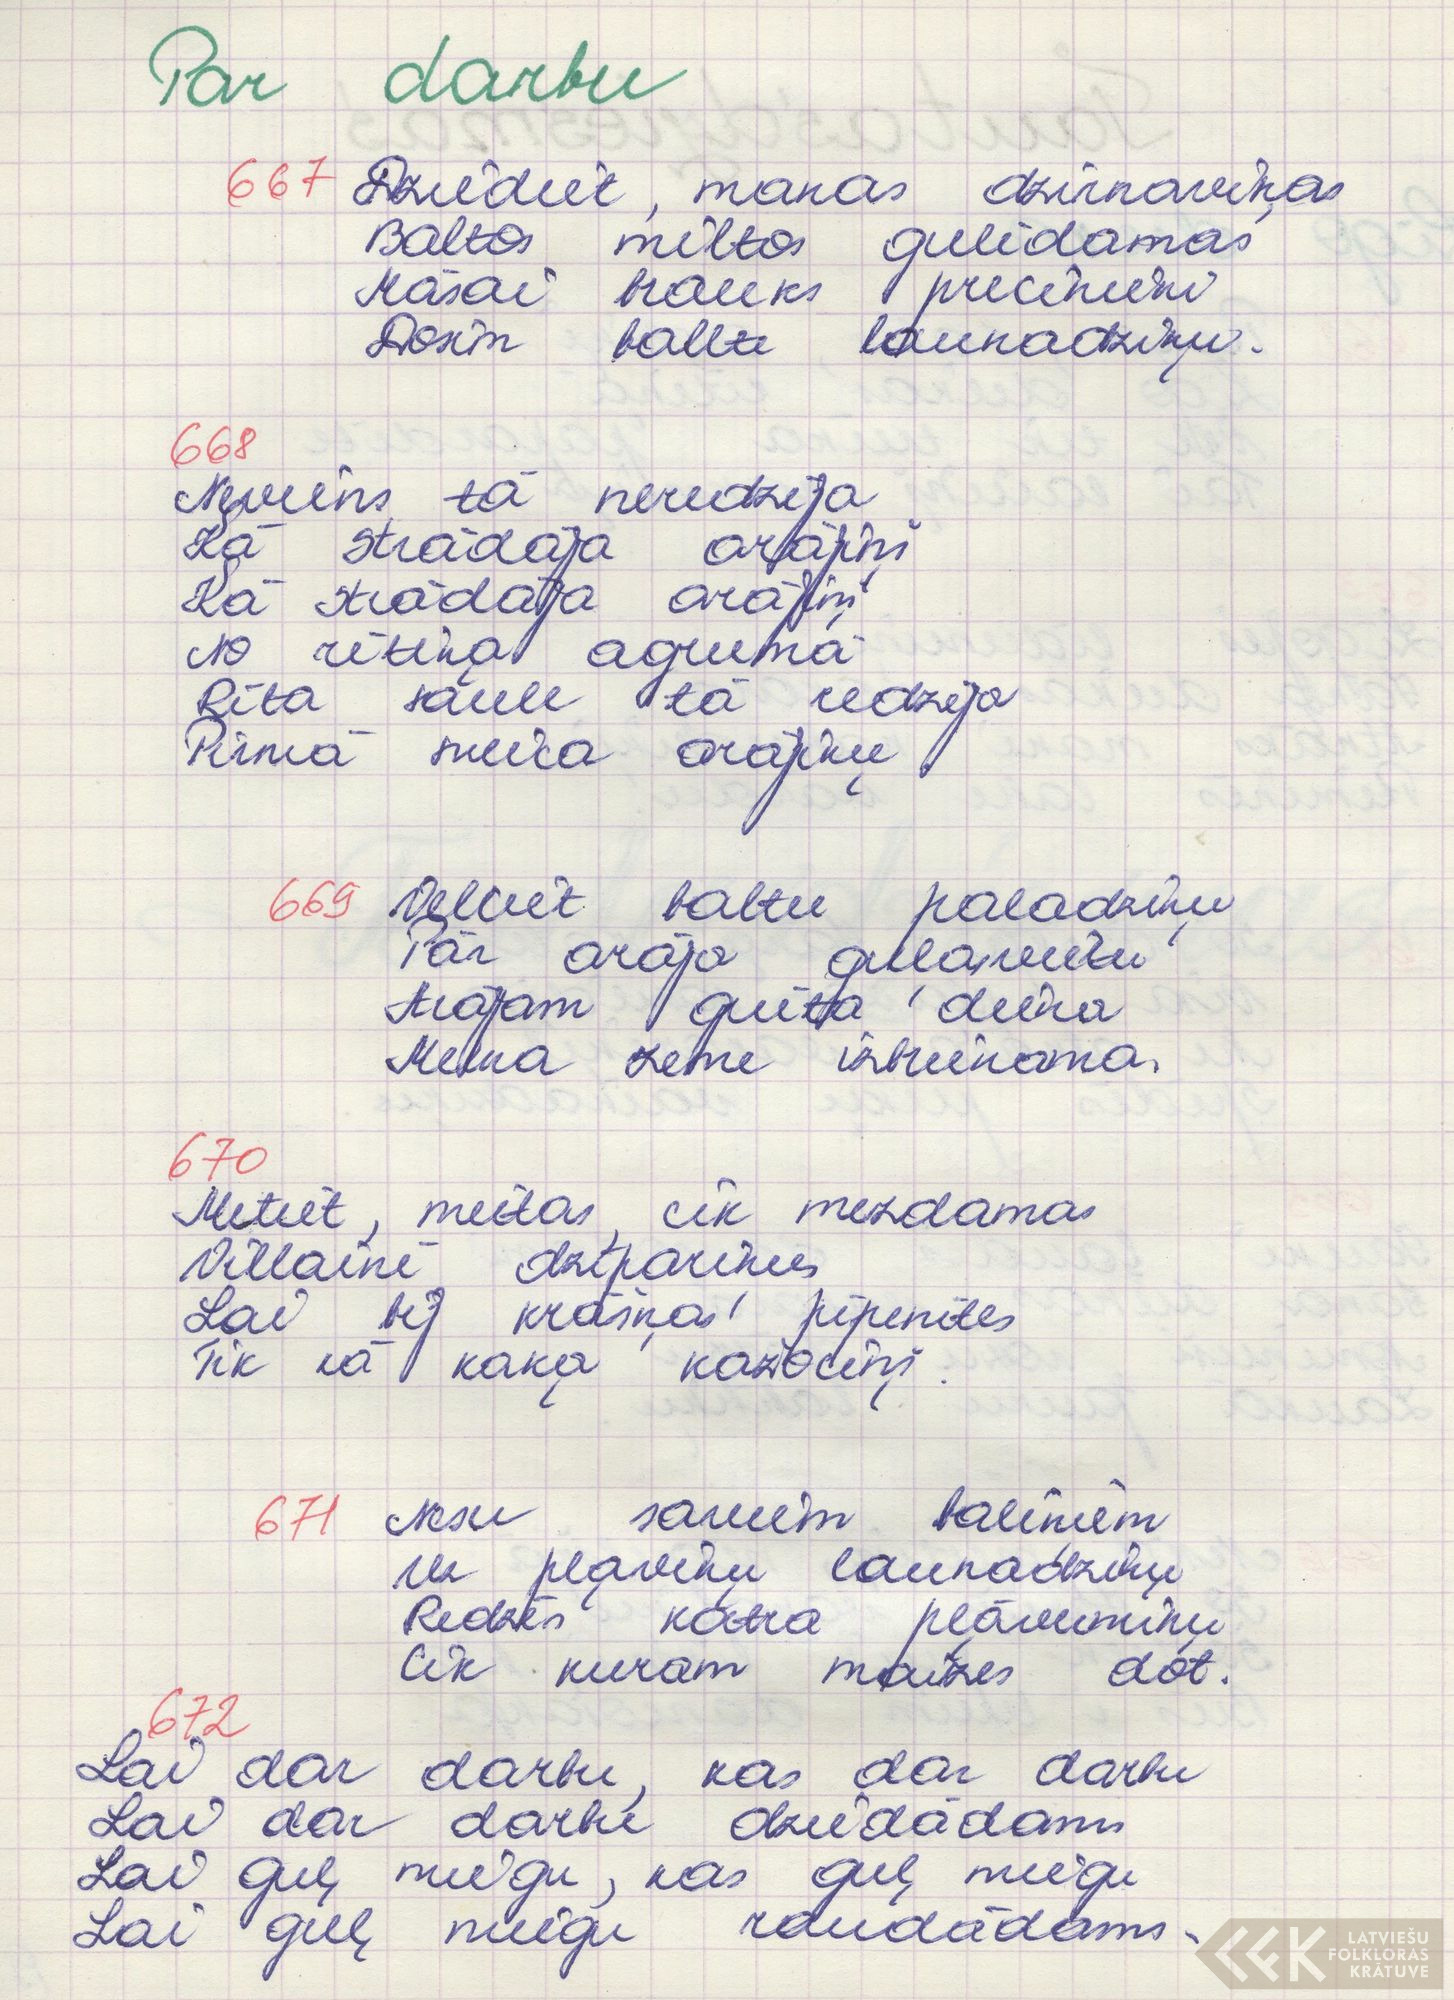 Par darbu
667 Dziediet, manas dzirnaviņas
Baltos miltos gulēdamas
Māsai brauks precinieki
Dosim baltu launadziņu.
668
Neviens tā neredzēja
Kā strādāja arājiņi
Kā strādāja arājiņi
No rītiņa agrumā
Rīta saule tā redzēja
Pirmā sveica arājiņu
669 Velciet baltu paladziņu
Pār arāja gulasvietu
Arājam grūta diena
Melna zeme izbrienama.
670
Metiet, meitas, cik mezdamas
Villainē dzīpariņus
Lai bij krāšņas pīpenītes
Tik kā kaķa kažociņi.
671 Nesu saviem baliņiem
Uz pļaviņu launadziņu
Redzēs katra pļāvumiņu
Cik kuram maizes dot.
672
Lai dar darbu, kas dar darbu
Lai dar darbu dziedādams
Lai guļ miegu, kas guļ miegu
Lai guļ miegu raudādams.
LATVIEŠU
FOLKLORAS
KRĀTUVE